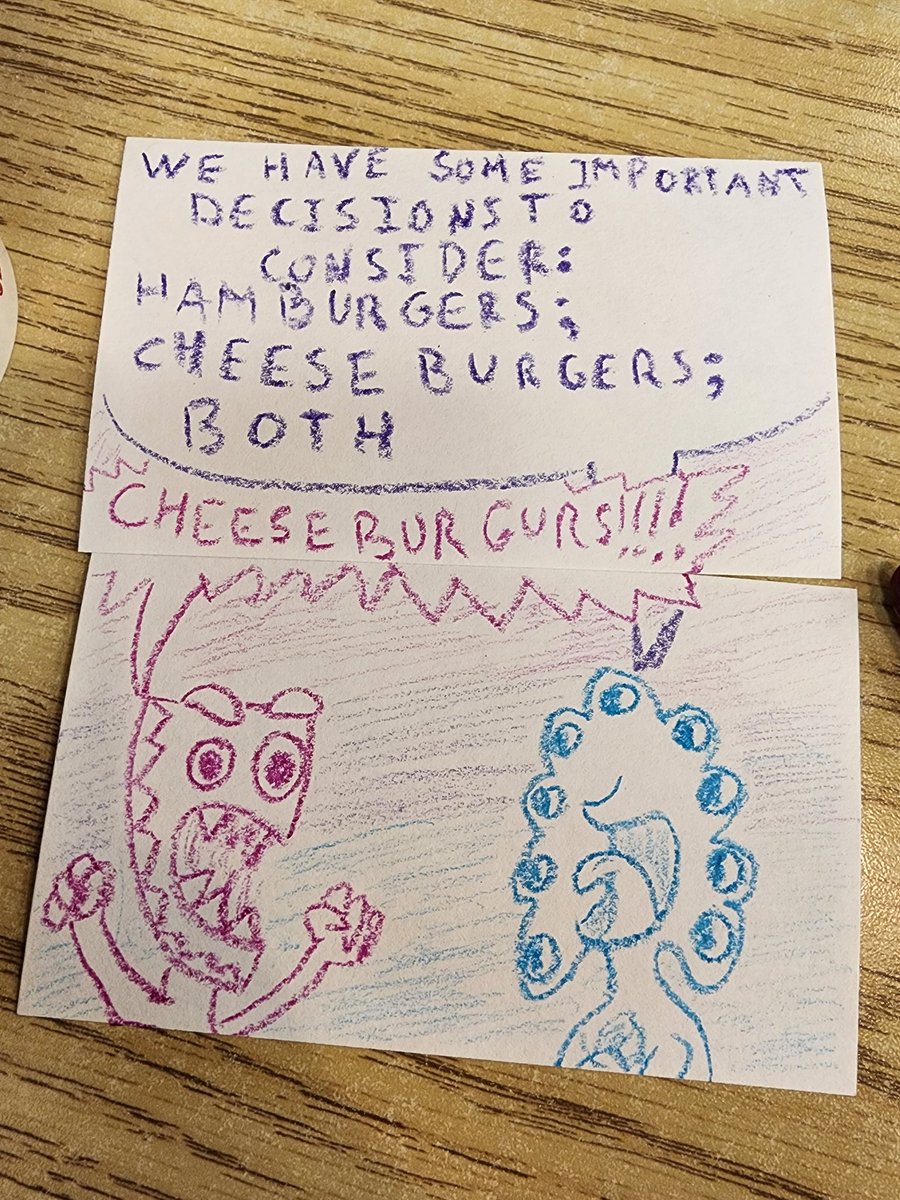 WE HAVE SOME IMPORTANT
DECISIONS TO
CONSIDER:
HAMBURGERS;
CHEESE BURGERS;
BOTH
CHEESEBURGURS!!!!